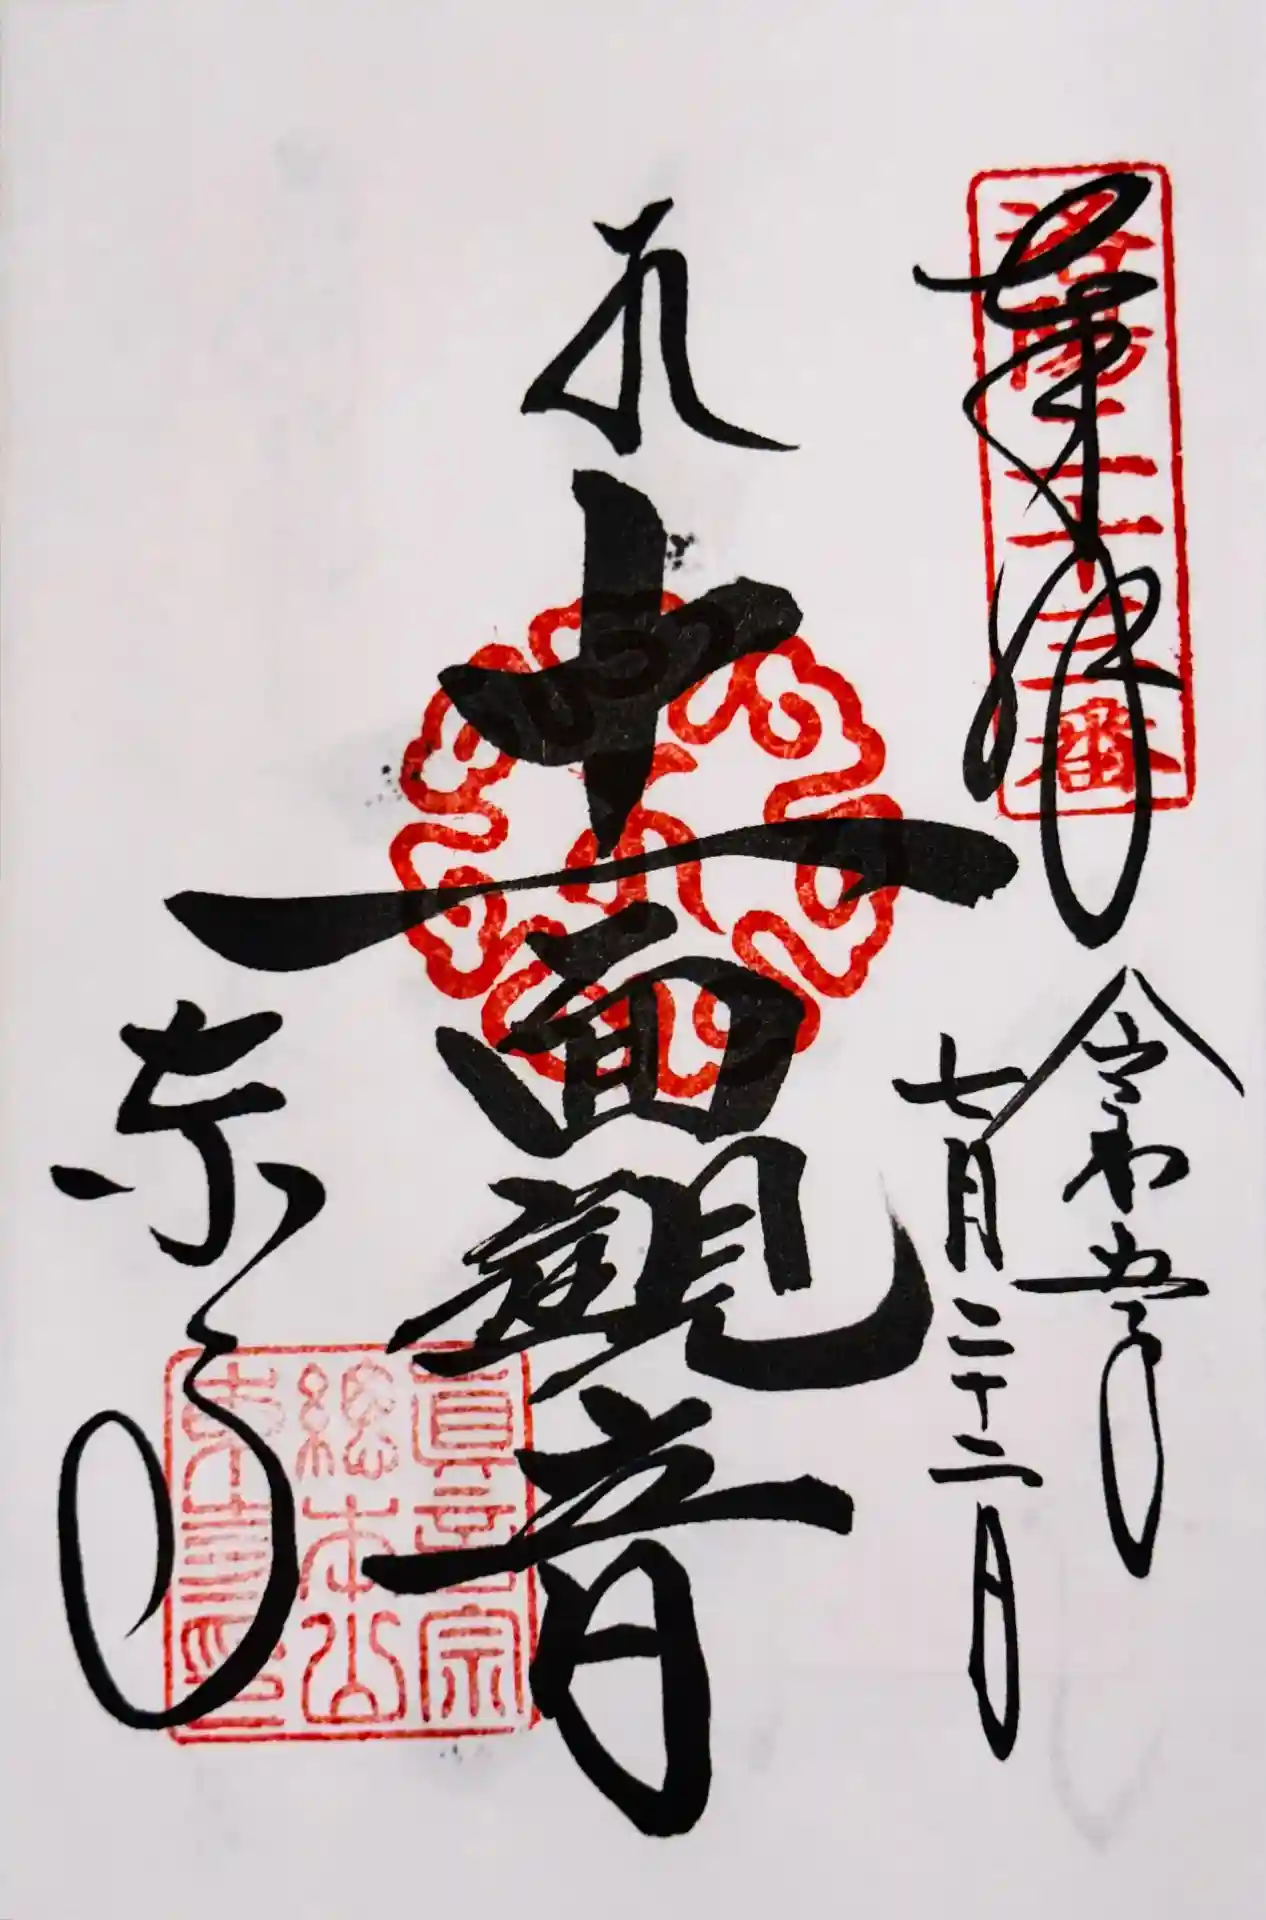 洛陽二十三番
奉拝
令和五年
七月二十二日
十一面觀音
東寺
真言宗
総本山
東寺印